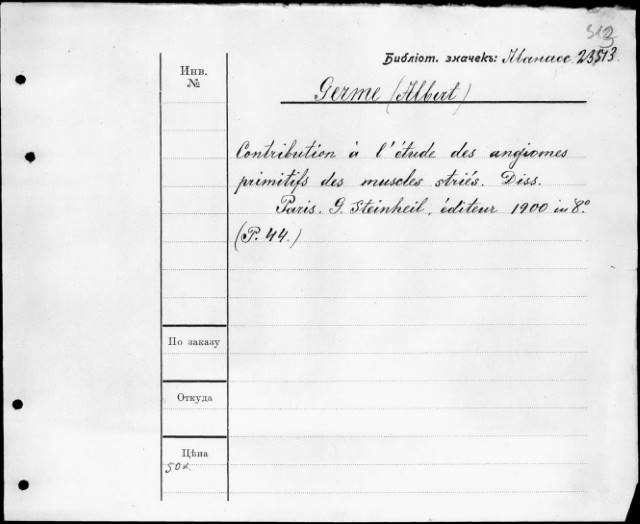 312
Библіот. значекъ: Иванас. 23513.
Инв.
№
Germe (Albert)
Contribution à l'étude des angiomes
primitifs des muscles striés. Diss.
Paris. G. Steinheil, éditeur 1900 in 8°.
(P. 44.)
По заказу
Откуда
Цѣна
50к.